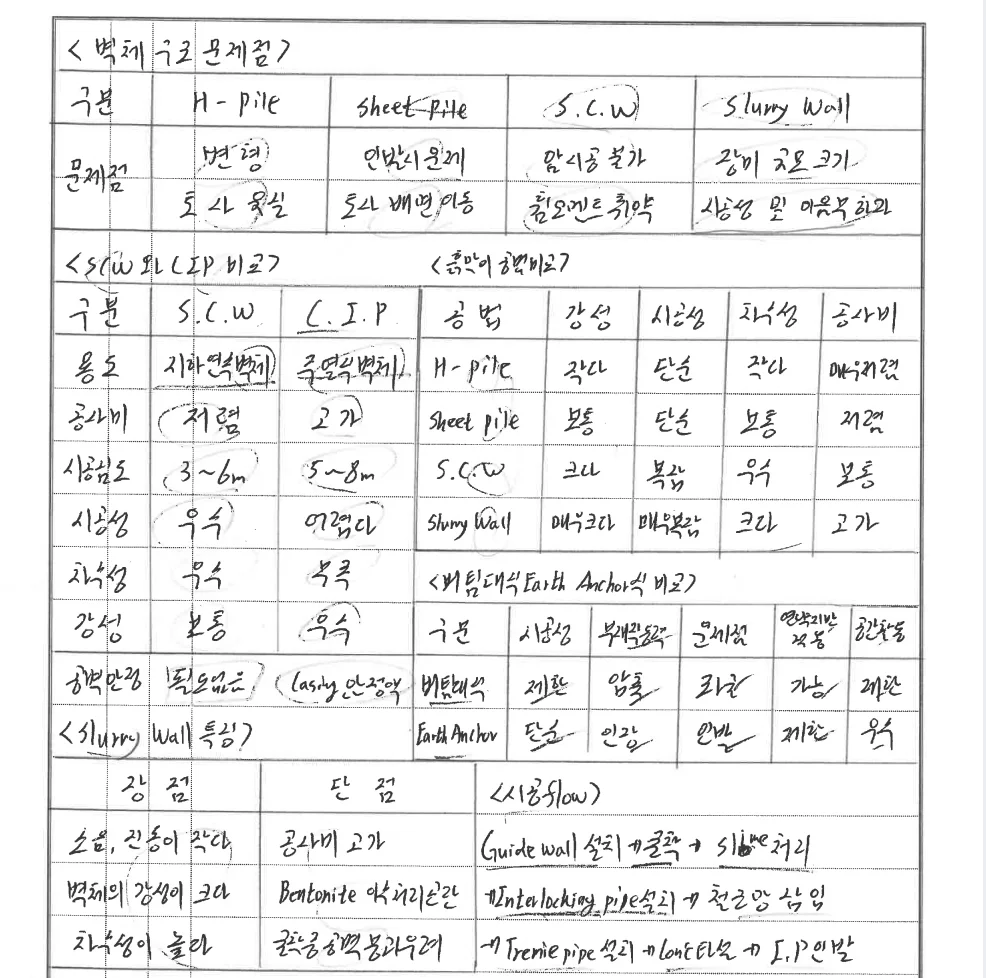 <벽체 구조 문제점>
구분 H-pile Sheet pile S.C.W Slurry Wall
문제점 변형 인발시 문제 암시공 불가 장비 규모 크기
토사 유실 토사 배면 이동 휨모멘트 취약 시공성 및 이음부 하자
<SCW와 CIP 비교>
구분 S.C.W C.I.P
용도 지하연속벽체 주열식벽체
공사비 저렴 고가
시공심도 3~6m 5~8m
시공성 우수 어렵다
차수성 우수 부족
강성 보통 우수
공벽안정 필요없음 Casing 안정액
<흙막이 공법비교>
공법 강성 시공성 차수성 공사비
H-pile 작다 단순 작다 매우저렴
Sheet pile 보통 단순 보통 저렴
S.C.W 크다 복잡 우수 보통
Slurry Wall 매우크다 매우복잡 크다 고가
<버팀대식 Earth Anchor식 비교>
구분 시공성 부재작용력 문제점 연약지반 적용 공간활동
버팀대식 제한 압축 좌굴 가능 제한
Earth Anchor 단순 인장 인발 제한 우수
<Slurry Wall 특징>
장점 단점
소음, 진동이 작다 공사비 고가
벽체의 강성이 크다 Bentonite 이수처리곤란
차수성이 높다 굴착중 공벽붕괴우려
<시공flow>
Guide wall 설치 → 굴착 → Slime 처리
→ Interlocking pipe설치 → 철근망 삽입
→ Tremie pipe 설치 → Conc타설 → I.P 인발